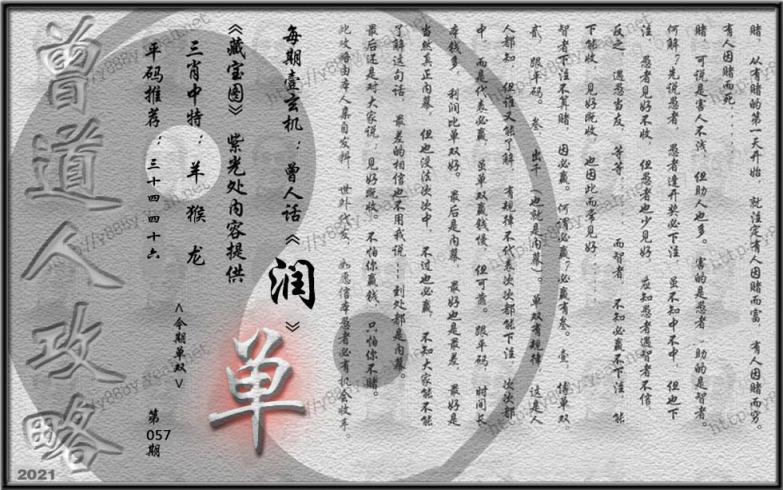 赌，从有赌的第一天开始，就注定有人因赌而富，有人因赌而穷。
有人因赌而死......
赌，可说是害人不浅，但助人也多。害的是愚者，助的是智者。
何解？先说愚者，愚者逢开奖必下注，虽不知中不中，但也下
注，愚者见好不收，但愚者也少见好，应知愚者遇智者不信，
反之，遇愚当友，等等，而智者，不知必赢不下注，能
下能收，见好既收，也因此而常见好......
智者下注不算赌，因必赢。何谓必赢？必赢有叁。壹，博单双。
贰，跟平码。叁，出千（也就是内幕）。单双有规律，这是人
人都知，但谁又能了解，有规律不代表次次都能下注，次次都
中，而是代表必赢，虽单双赢钱慢，但可靠。跟平码，时间长
本钱多，利润比单双好。最后是内幕，最好也是最差，最好是
当然真正内幕，但也没法次次中，不过也必赢，不知大家能不能
了解这句话，最差的相信也不用我说...到处都是内幕。
最后还是对大家说：见好既收。不怕你赢钱，只怕你不赌。
此攻略由本人亲自发料，世外代发，愿信本愚者必有机会收
每期壹玄机：曾人话《润》
《藏宝图》紫光处内容提供
三肖中特：羊 猴 龙
平码推荐：三十四 四十六
<今期单双>
单
第057期
曾道人攻略
2021